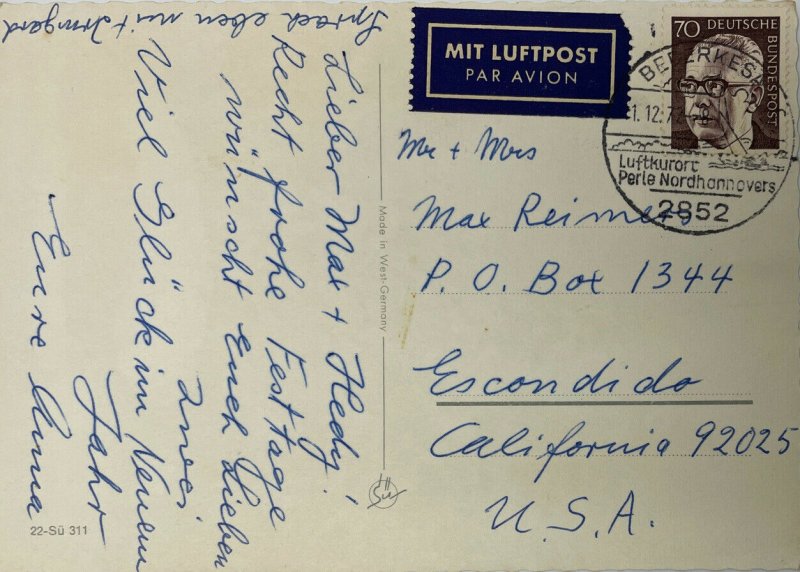 Sprach eben mit Irmgard
Lieber Max + Hedy!
Recht frohe Festtage
wünscht Euch Lieben
zwei
Viel Glück im Neuem
Jahr
Eure Anna
22-Sü 311
Made in West-Germany
Sü
MIT LUFTPOST
PAR AVION
70 DEUTSCHE
BUNDESPOST
1.12.7
Luftkurort
Perle Nordhannovers
2852
Mr + Mrs
Max Reimers
P. O. Box 1344
Escondido
California 92025
U.S.A.